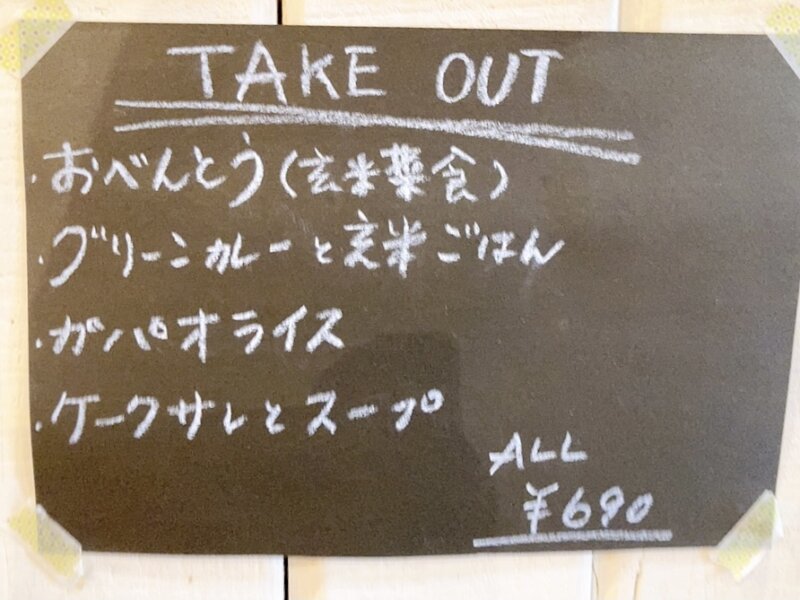 TAKE OUT
・おべんとう(玄米薬食)
・グリーンカレーと玄米ごはん
・ガパオライス
・ケークサレとスープ
ALL
¥690